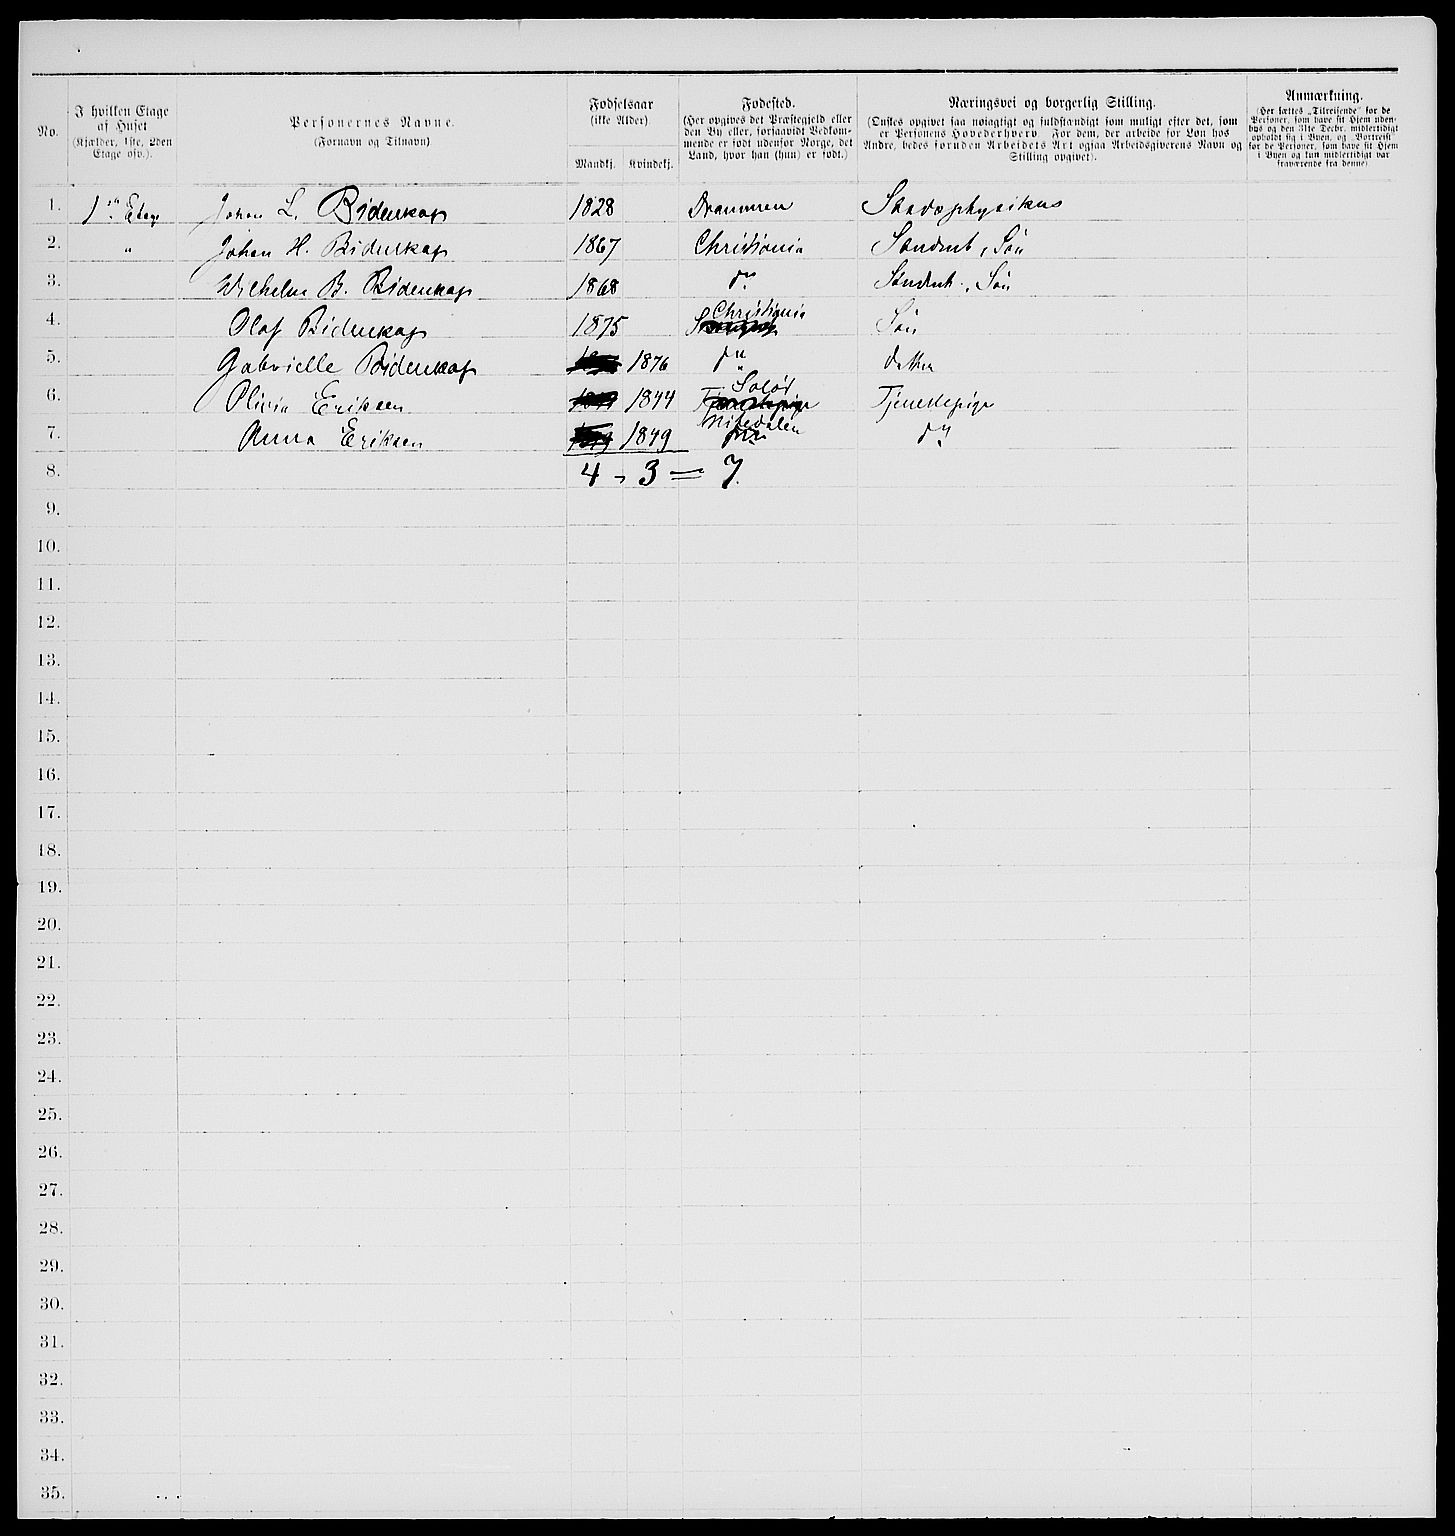 No.
I hvilken Etage af Huset
(Kjælder, 1ste, 2den Etage osv.).
Personernes Navne.
(Fornavn og Tilnavn)
Fødselsaar
(ikke Alder)
Mandkj.
Kvindekj.
Fødested.
(Her opgives det Præstegjeld eller den By eller, forsaavidt Vedkommende er født udenfor Norge, det Land, hvor han (hun) er født.)
Næringsvei og borgerlig Stilling.
(Ønskes opgivet saa nøiagtigt og fuldstændigt som muligt efter det, som er Personens Hovederhverv. For dem, der arbeide for Løn hos Andre, bedes foruden Arbeidets Art ogsaa Arbeidsgiverens Navn og Stilling opgivet).
Anmærkning.
(Her sættes „Tilreisende“ for de Personer, som have sit Hjem udenbys og den 31te Decbr. midlertidigt opholdt sig i Byen, og „Bortreist“ for de Personer, som have sit Hjem i Byen og kun midlertidigt var fraværende fra denne)
1. 1ste Etage Johan L. Bidenkap 1828 Drammen Stadsphysikus
2. " Johan H. Bidenkap 1867 Christiania Student, Søn
3. Wilhelm B. Bidenkap 1868 do Student, Søn
4. Olaf Bidenkap 1875 Christiania Søn
5. Gabrielle Bidenkap 1876 do datter
6. Olivia Eriksen 1844 Solør Tjenestepige
7. Anna Eriksen 1849 Nitedalen do
8. 4 - 3 = 7.
9.
10.
11.
12.
13.
14.
15.
16.
17.
18.
19.
20.
21.
22.
23.
24.
25.
26.
27.
28.
29.
30.
31.
32.
33.
34.
35.